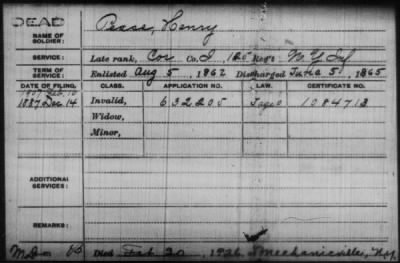 DEAD
NAME OF SOLDIER:
Pease, Henry
SERVICE:
Late rank, Cor Co. I, 125 Reg't N. Y. Inf
TERM OF SERVICE:
Enlisted Aug 5, 1862 Discharged June 5, 1865
DATE OF FILING. CLASS. APPLICATION NO. LAW. CERTIFICATE NO.
1907 Feb. 10
1887 Dec 14 Invalid, 632200 1084713
Widow,
Minor,
ADDITIONAL SERVICES:
REMARKS:
Died Feb 20, 1926 Mechanicville, N.Y.